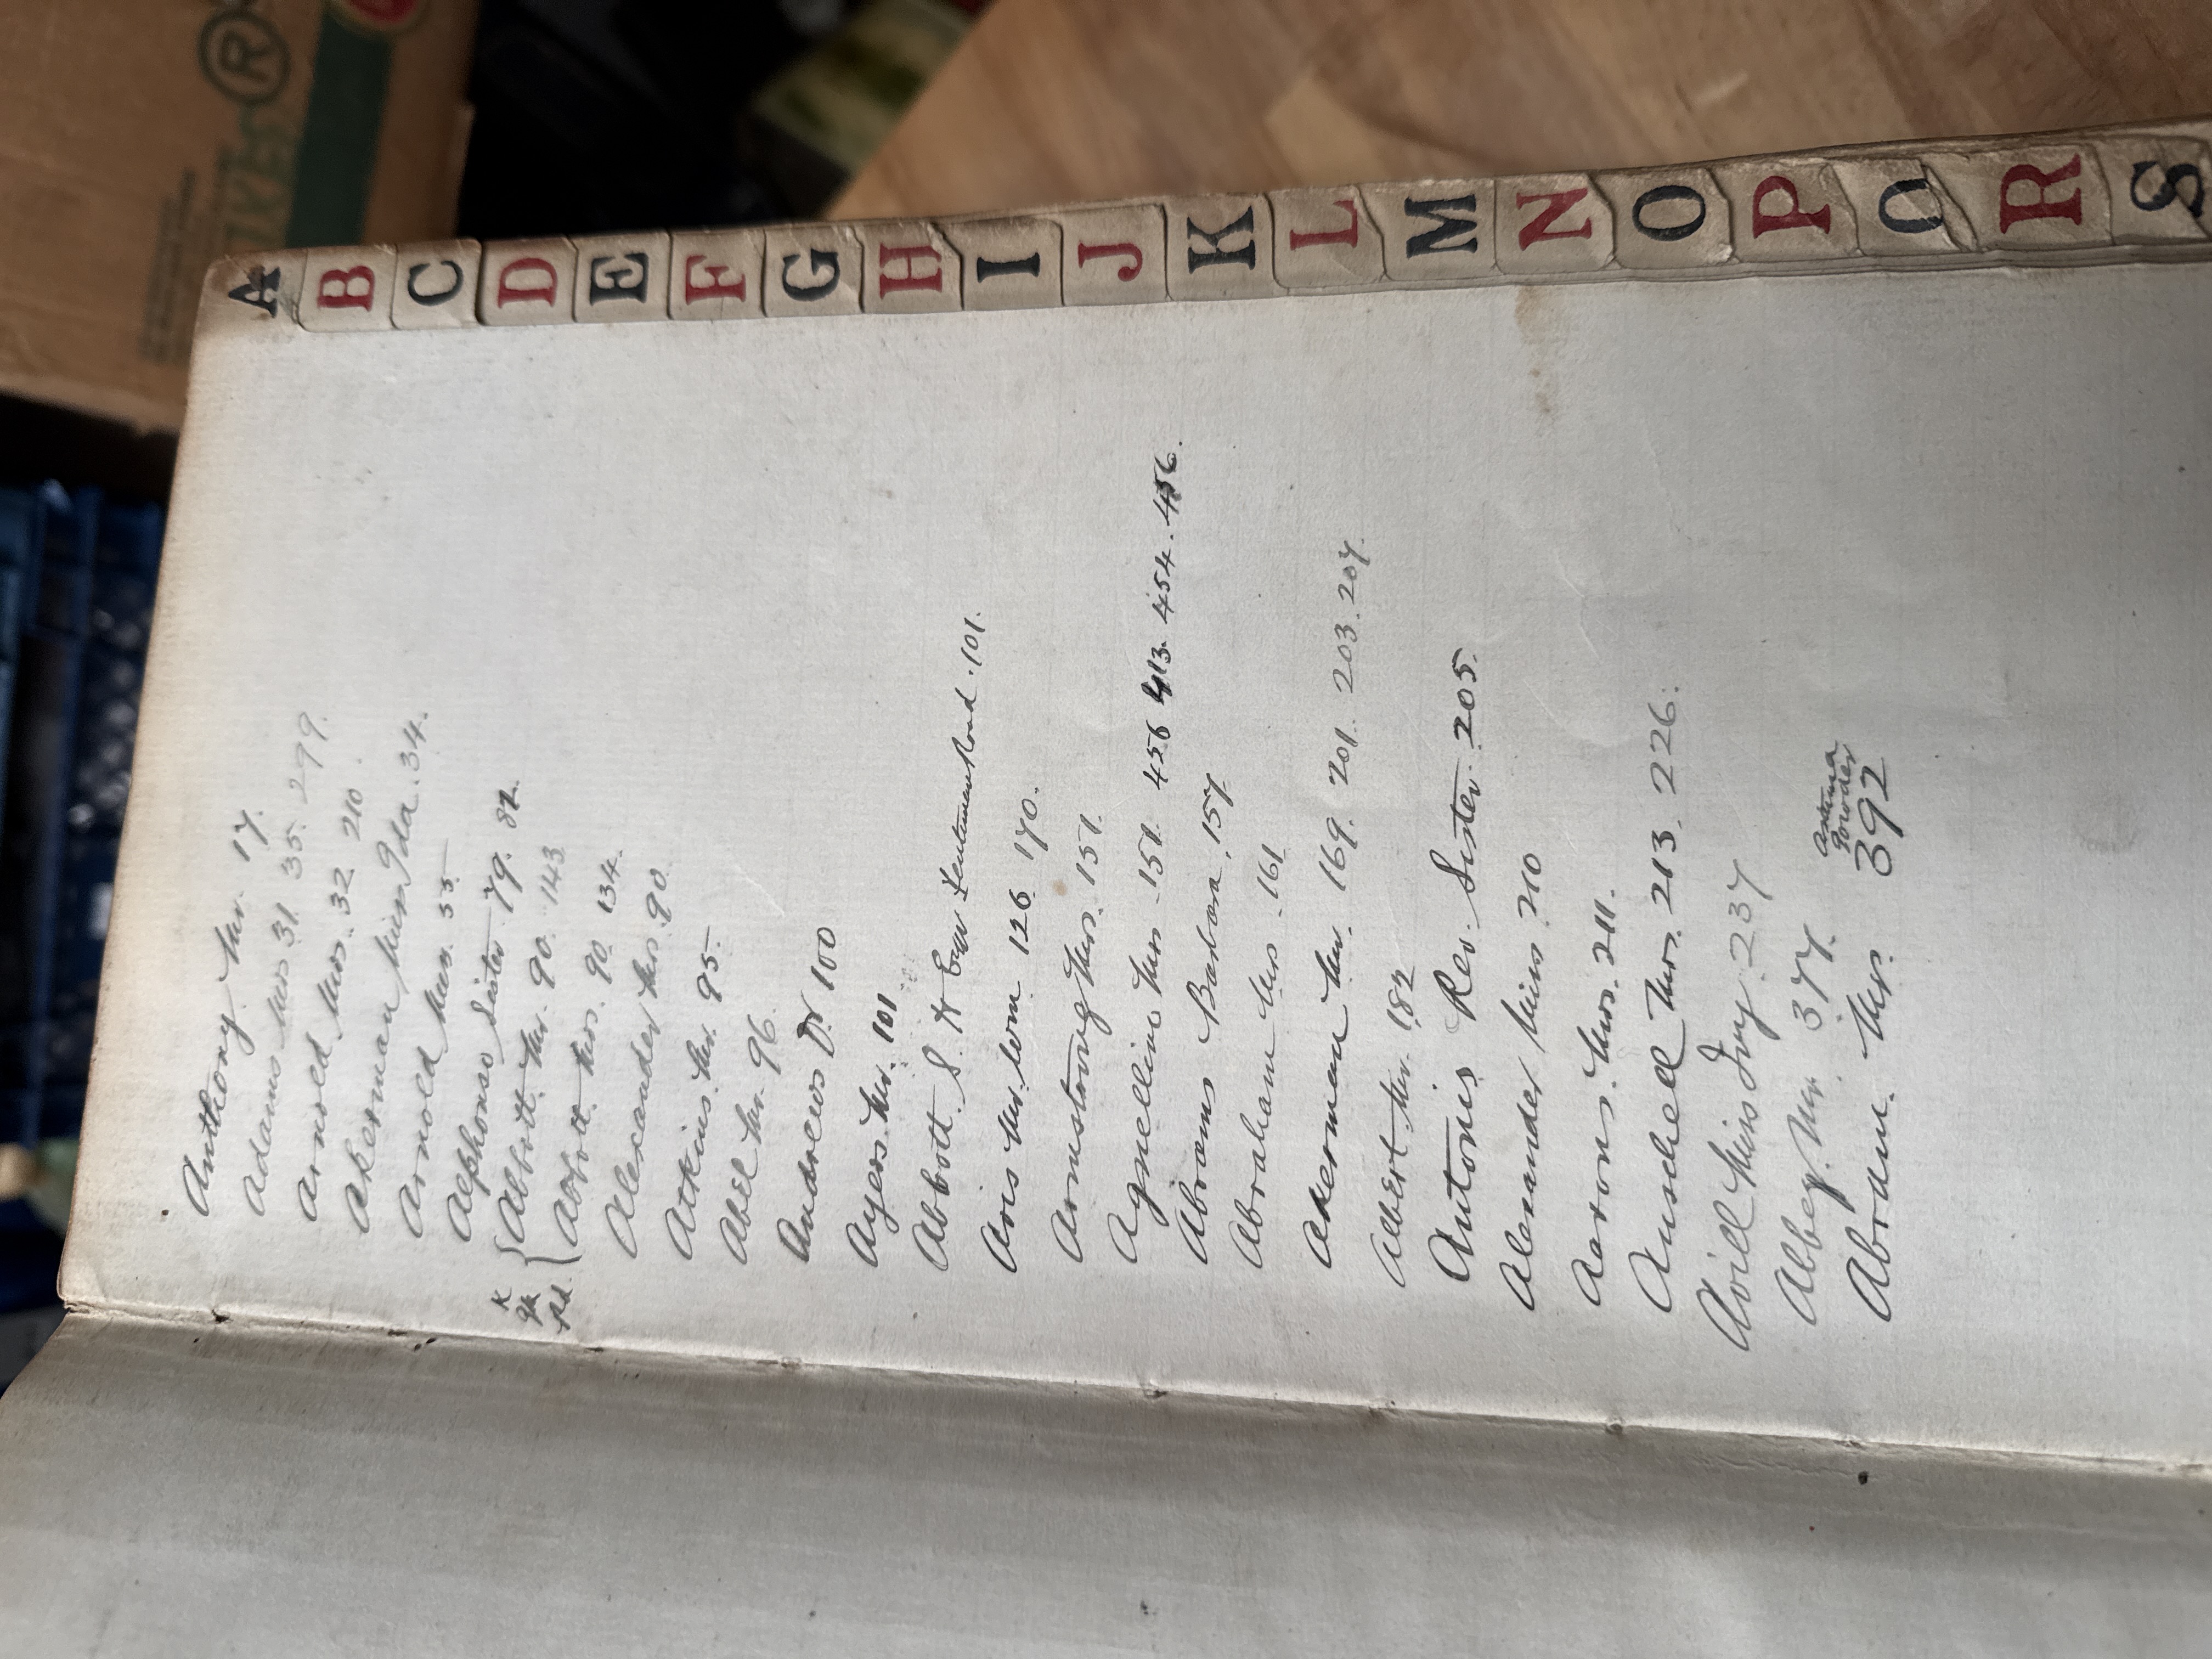 A
B
C
D
E
F
G
H
I
J
K
L
M
N
O
P
Q
R
S
Anthony. Mr. 17.
Adams Mrs 31. 35. 299.
Arnold Mrs. 32 210.
Akerman Miss Ida. 34.
Arnold Mrs. 55
Alphonso Sister 79. 82.
K { Abbott Mr. 90. 143
Rd. { Abbott. Mrs. 90 134.
Alexander Mrs. 90.
Atkins. Mr. 95.
Abel Mr. 96.
Andrews Dr 100
Ayers Mr. 101
Abbott. S. H 101.
Aris Mr 126 170.
Armstrong Mrs. 151.
Agnellino Mrs 151. 456 413. 454. 456.
Abrams Barbara. 157
Abraham Mrs 161
Akerman Mr. 169. 201. 203. 207.
Albert Mr. 182
Antonis Rev. Sister. 205.
Alexander Miss 210
Aarons. Mrs. 211.
Anschell Mrs. 213. 226.
Avill Miss Ivy. 237
Abbey. Mr 377.
Asthma
Powder
Abram. Mrs. 392